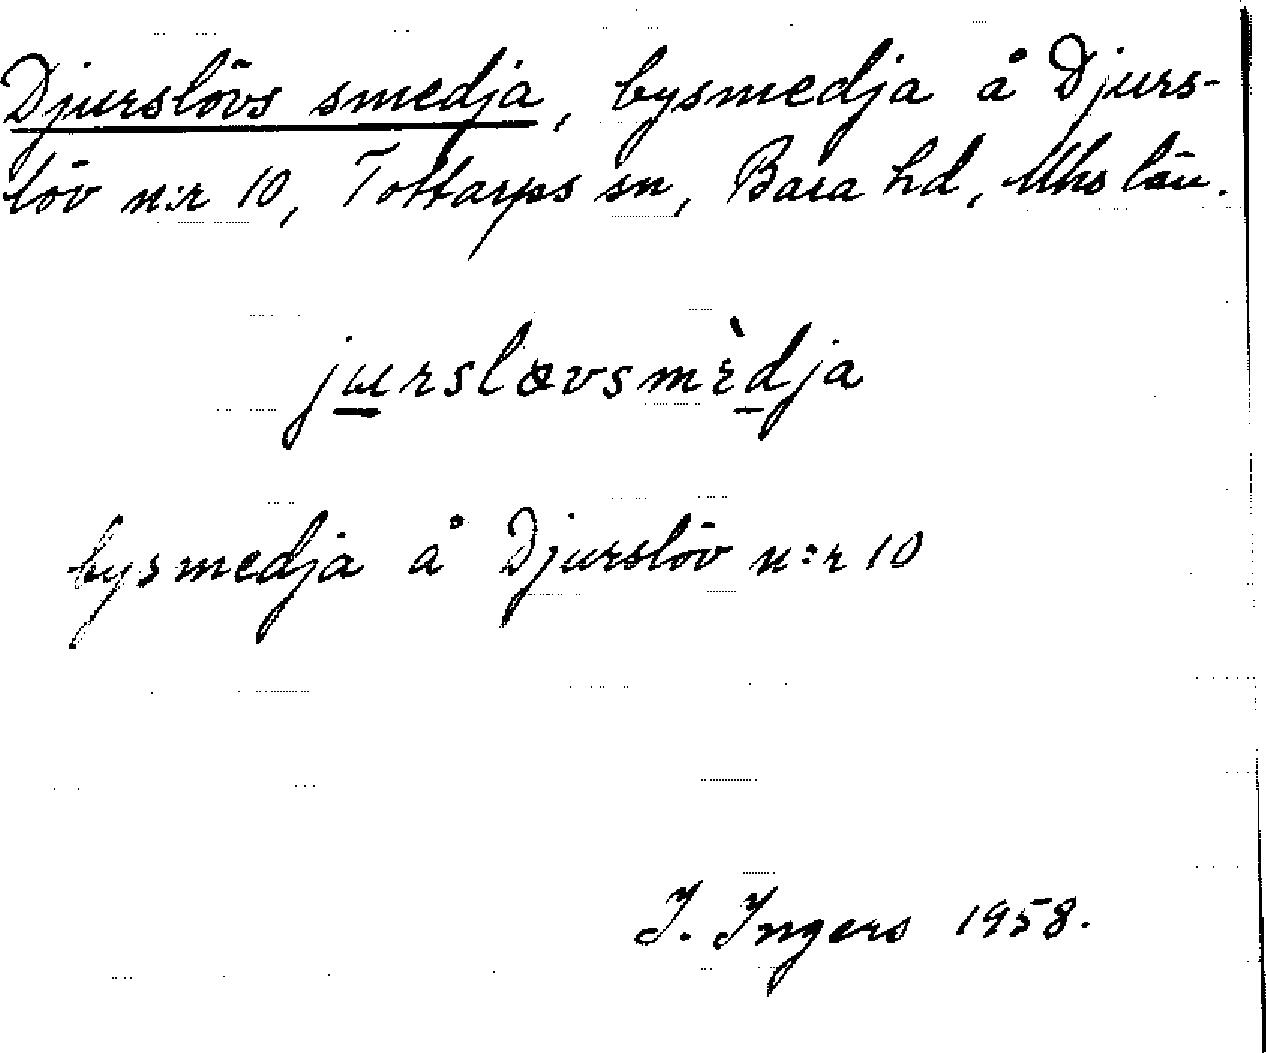 Djurslövs smedja, bysmedja å Djurs-
löv n:r 10, Tottarps sn, Bara hd, Mhs län.
jurslœvsmɛ̀dja
bysmedja å Djurslöv n:r 10
I. Ingers 1958.